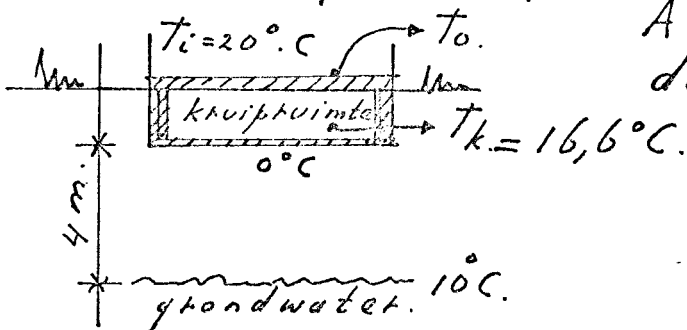 Ti = 20°C
To.
A
d
kruipruimte
Tk = 16,6°C.
0°C
4 m.
10°C.
grondwater.